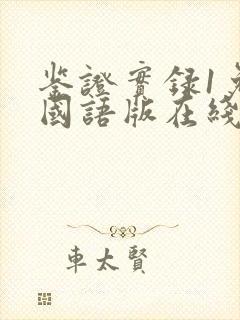 鉴證實录1免
國語版在綫
車太賢